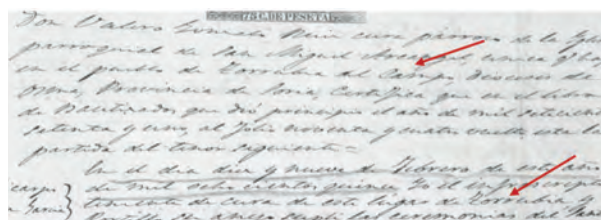 75 C. DE PESETA
Don Valero Gonzalo cura párroco de la Igle
parroquial de San Miguel Arcangel, unica q hay
en el pueblo de Torrubia del Campo, Diócesis de
Osma, Provincia de Soria, Certifico que en el libro
de Bautizados que dió principio el año de mil setecientos
setenta y uno, al folio noventa y cuatro vuelto esta la
partida del tenor siguiente =
En el dia diez y nueve de Febrero de este año
de mil ochocientos quince Yo el infrascripto
teniente de Cura de este lugar de Torrubia
las ceremonias